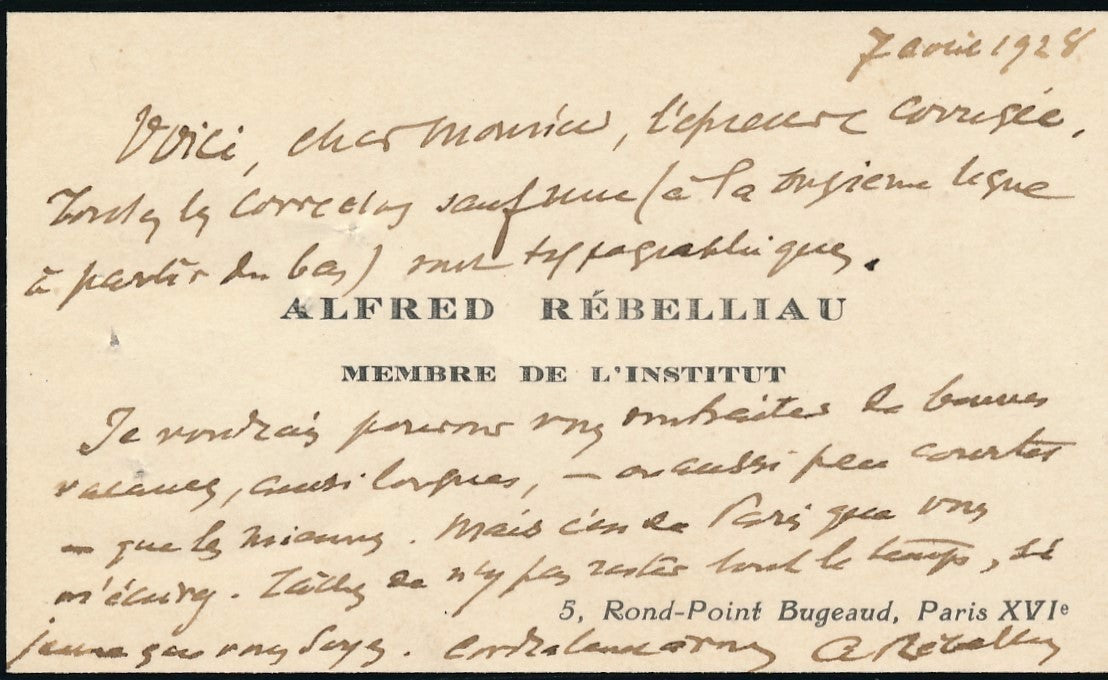 7 avril 1928
Voici, cher Monsieur, l'épreuve corrigée.
Toutes les corrections sauf une (à la onzième ligne
à partir du bas) sont typographiques.
ALFRED RÉBELLIAU
MEMBRE DE L'INSTITUT
Je voudrais pouvoir vous souhaiter de bonnes
vacances, aussi longues, – ou aussi peu courtes
– que les miennes. Mais c'est de Paris que vous
m'écrivez. Tâchez de n'y pas rester tout le temps, si
5, Rond-Point Bugeaud, Paris XVIe
jeune que vous soyez. Cordialement à vous A Rébelliau